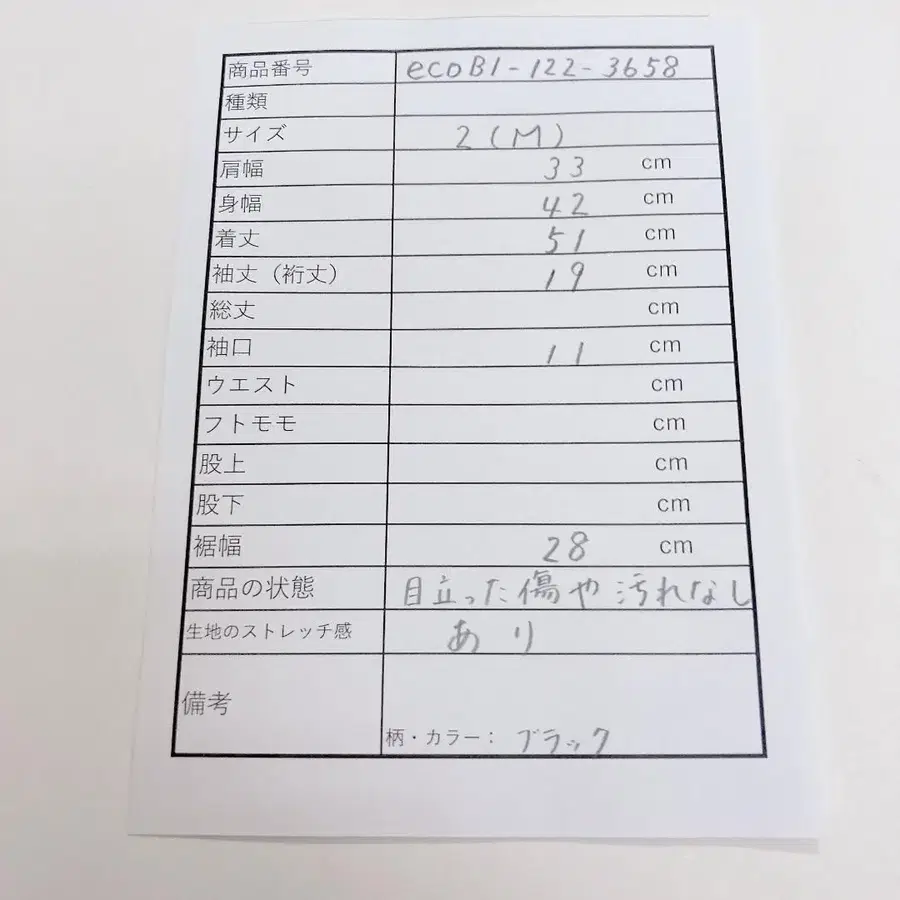 商品番号 ecoB1-122-3658
種類
サイズ 2(M)
肩幅 33 cm
身幅 42 cm
着丈 51 cm
袖丈（裄丈） 19 cm
総丈 cm
袖口 11 cm
ウエスト cm
フトモモ cm
股上 cm
股下 cm
裾幅 28 cm
商品の状態 目立った傷や汚れなし
生地のストレッチ感 あり
備考
柄・カラー： ブラック